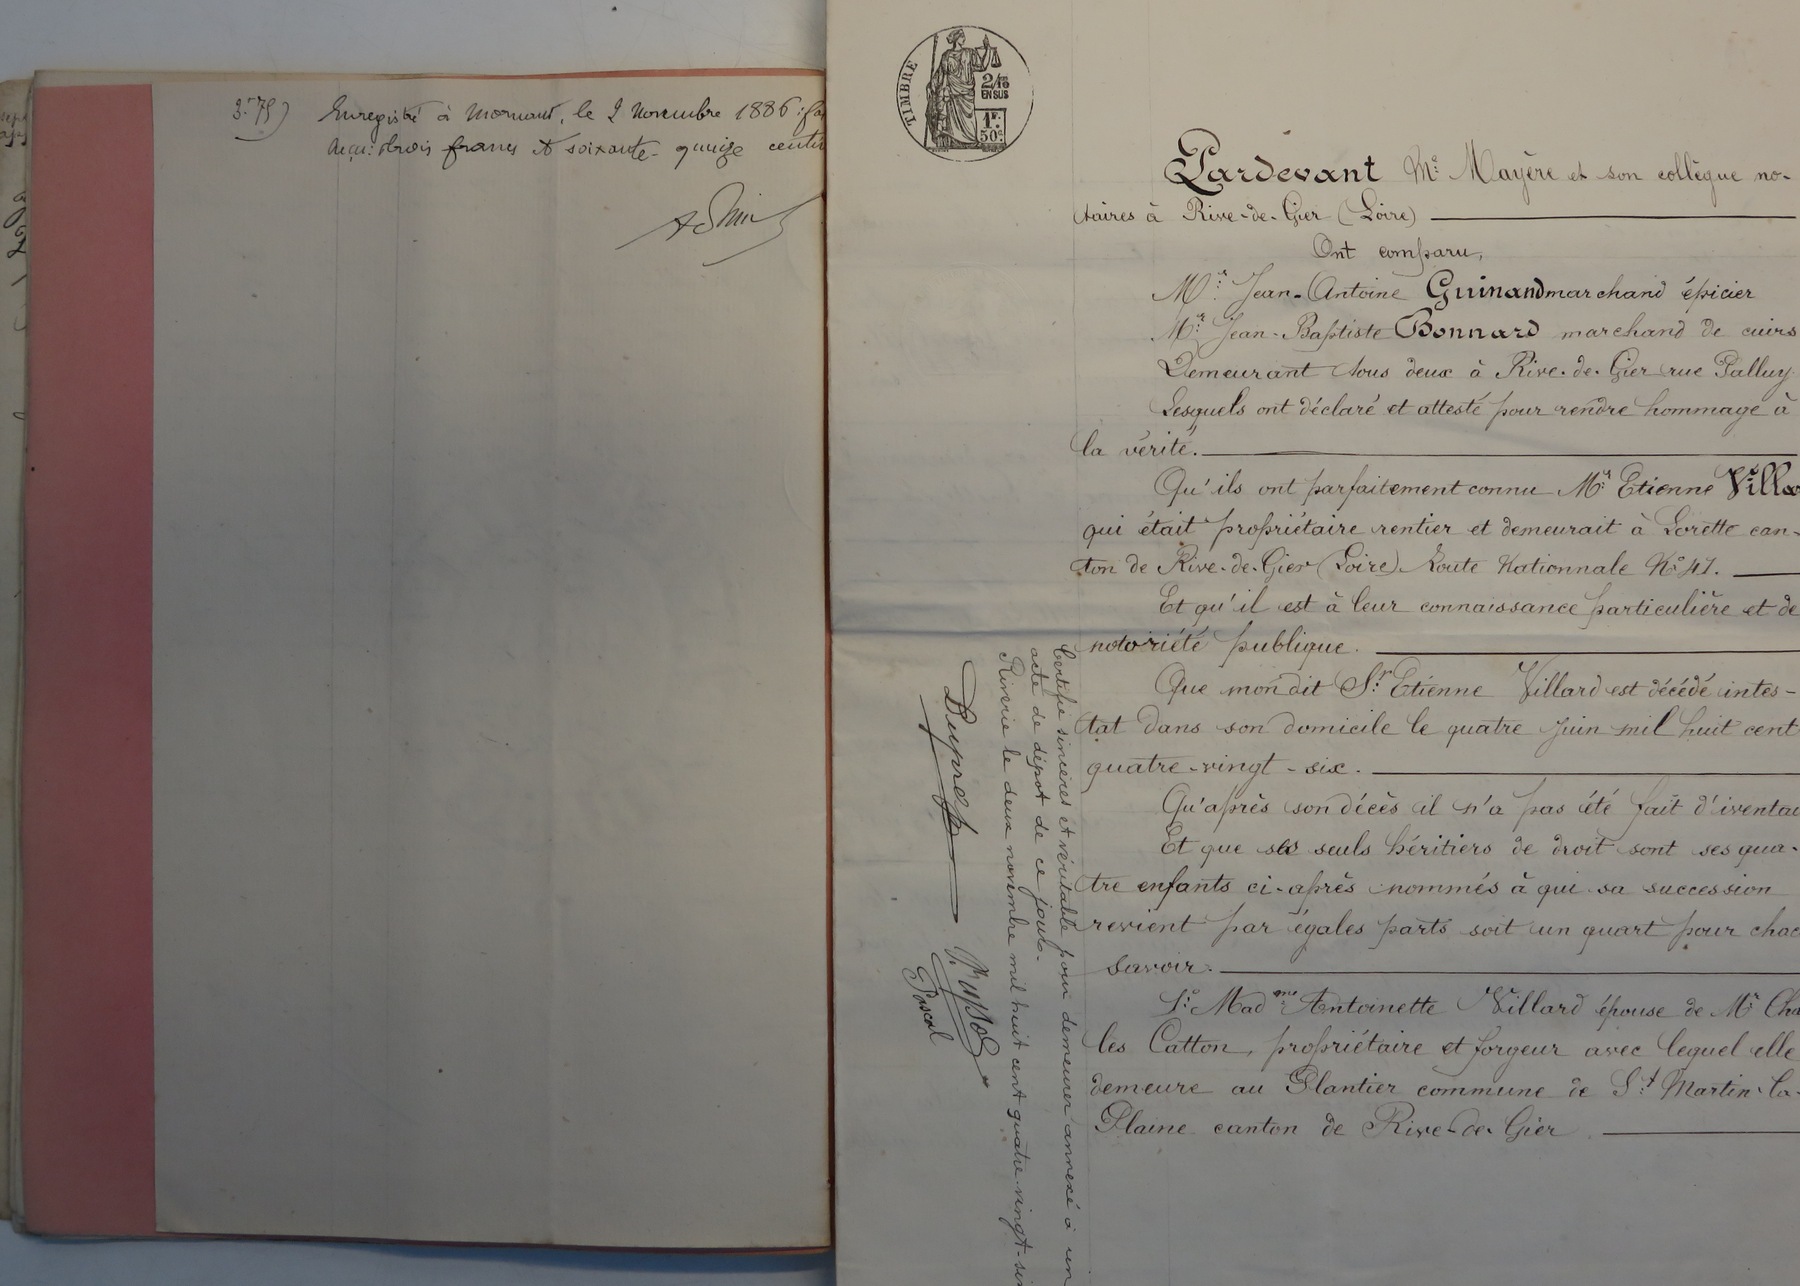 3.75)
Enregistré à Mornant, le 2 Novembre 1886: fo
Reçu: trois francs & soixante-quinze centi
TIMBRE
2/10
EN SUS
1F.
50c.
Pardevant Me. Mayère et son collègue no-
taires à Rive-de-Gier (Loire)
Ont comparu,
Mr. Jean-Antoine Guinand marchand épicier
Mr. Jean-Baptiste Bonnard marchand de cuirs
Demeurant tous deux à Rive-de-Gier rue Palluy.
Lesquels ont déclaré et attesté pour rendre hommage à
la vérité.
Qu'ils ont parfaitement connu Mr. Etienne Villa
qui était propriétaire rentier et demeurait à Lorette can-
ton de Rive-de-Gier (Loire) Route Nationnale No. 41.
Et qu'il est à leur connaissance particulière et de
notoriété publique.
Que mon dit Sr. Etienne Villard est décédé intes-
tat dans son domicile le quatre juin mil huit cent
quatre-vingt-six.
Qu'après son décès il n'a pas été fait d'iventai
Et que ses seuls héritiers de droit sont ses qua-
tre enfants ci-après nommés à qui sa succession
revient par égales parts soit un quart pour chac
savoir.
1o. Madme. Antoinette Villard épouse de Mr. Cha
les Catton, propriétaire et forgeur avec lequel elle
demeure au Plantier commune de St. Martin-la-
Plaine canton de Rive-de-Gier
Certifié sincères et véritable pour demeurer annexé à un
acte de dépôt de ce jour.
Riverie le deux novembre mil huit cent quatre vingt-six
Pascal